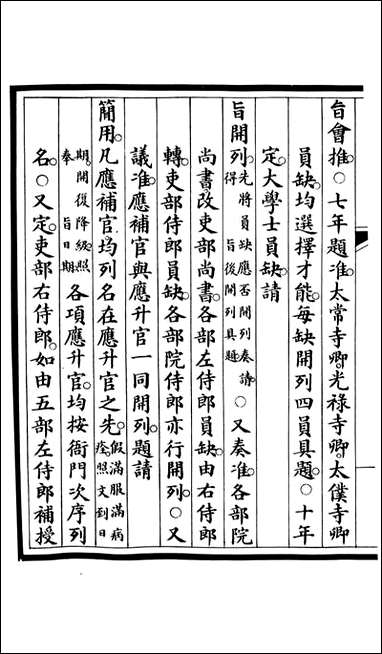 旨會推○七年題准太常寺卿光祿寺卿太僕寺卿
員缺均選擇才能每缺開列四員具題○十年
定大學士員缺請
旨開列先將員缺應否開列奏請
得旨後開列具題○又奏准各部院
尚書改吏部尚書各部左侍郎員缺由右侍郎
轉吏部侍郎員缺各部院侍郎亦行開列○又
議准應補官與應升官一同開列題請
簡用凡應補官均列名在應升官之先假滿服滿病
痊照文到日
期開復降級照
奉旨日期各項應升官均按衙門次序列
名○又定吏部右侍郎如由五部左侍郎補授